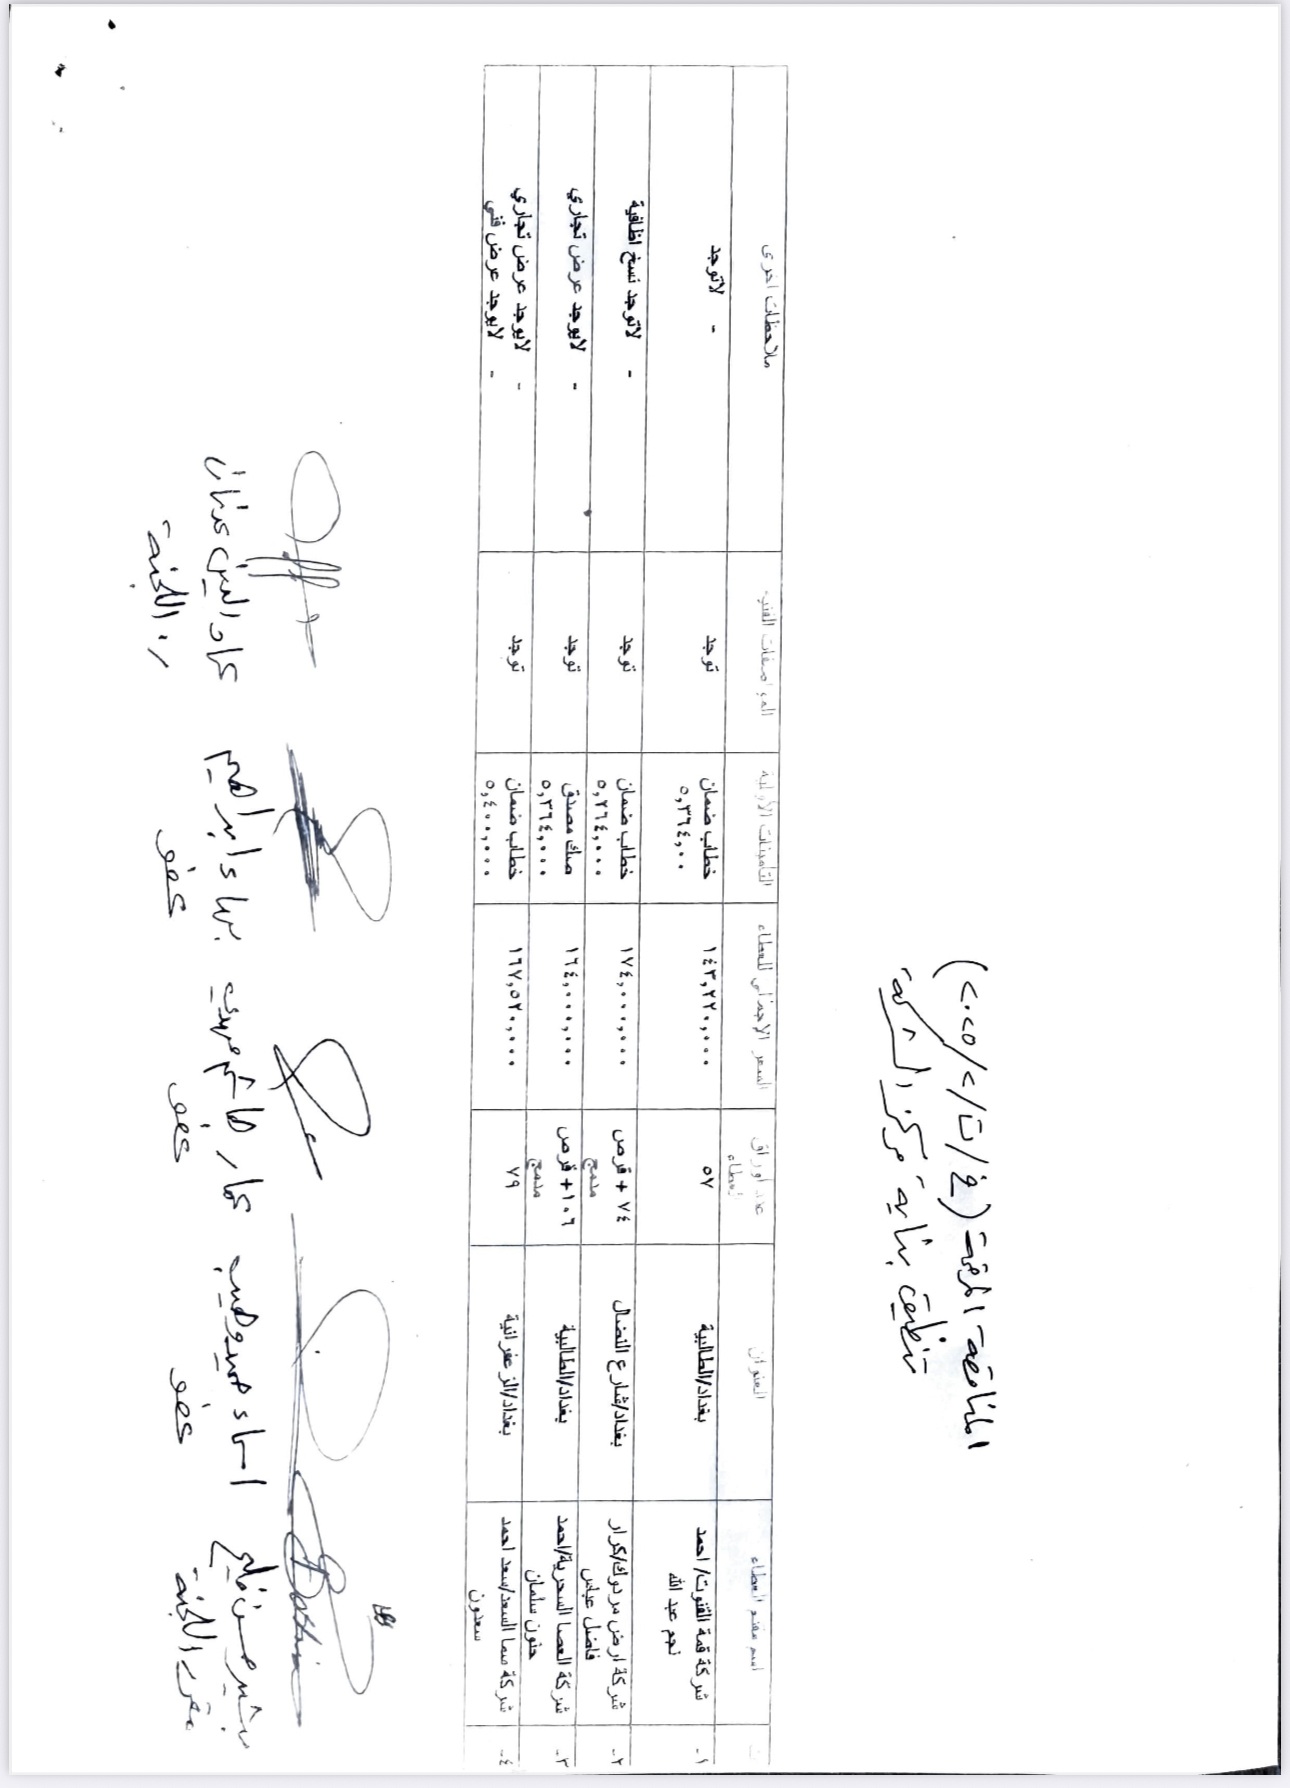 المناقصة المرقمة (خ/ث/٢/٢٠٢٥)
تنظيف بناية مركز الشركة
ت اسم مقدم العطاء العنوان عدد اوراق العطاء السعر الاجمالي للعطاء التأمينات الأولية المواصفات الفنية ملاحظات اخرى
١- شركة قمة القنوت/ احمد نجم عبد الله بغداد/الطالبية ٥٧ ١٤٣,٢٢٠,٠٠٠ خطاب ضمان ٥,٣٦٤,٠٠ توجد - لاتوجد
٢- شركة ارض مردوك/كرار فاضل عباس بغداد/شارع النضال ٧٤ + قرص مدمج ١٧٤,٠٠٠,٠٠٠ خطاب ضمان ٥,٢٦٤,٠٠٠ توجد - لاتوجد نسخ اظافية
٣- شركة العصا السحرية/احمد حنون سلمان بغداد/الطالبية ١٠٦+ قرص مدمج ١٦٤,٠٠٠,٠٠٠ صك مصدق ٥,٣٦٤,٠٠٠ توجد - لايوجد عرض تجاري
٤- شركة سما السعد/سعد احمد سعدون بغداد/الزعفرانية ٧٩ ١٦٧,٥٢٠,٠٠٠ خطاب ضمان ٥,٤٠٠,٠٠٠ توجد - لايوجد عرض تجاري
- لايوجد عرض فني
بشير حسن فليح
مقرر اللجنة
اسماء وهيب
عضو
عمار هاشم مهدي
عضو
بهاء ابراهيم
عضو
عماد الدين عدنان
ر. اللجنة